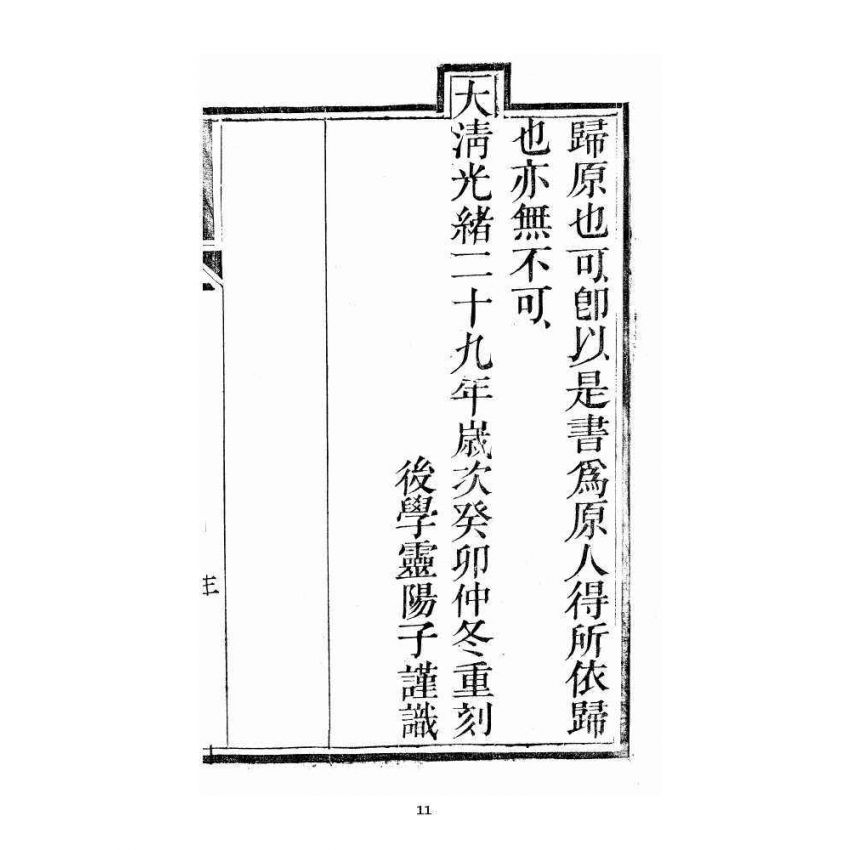 歸原也可、卽以是書爲原人得所依歸
也亦無不可、
大淸光緒二十九年歲次癸卯仲冬重刻
後學靈陽子謹識
11